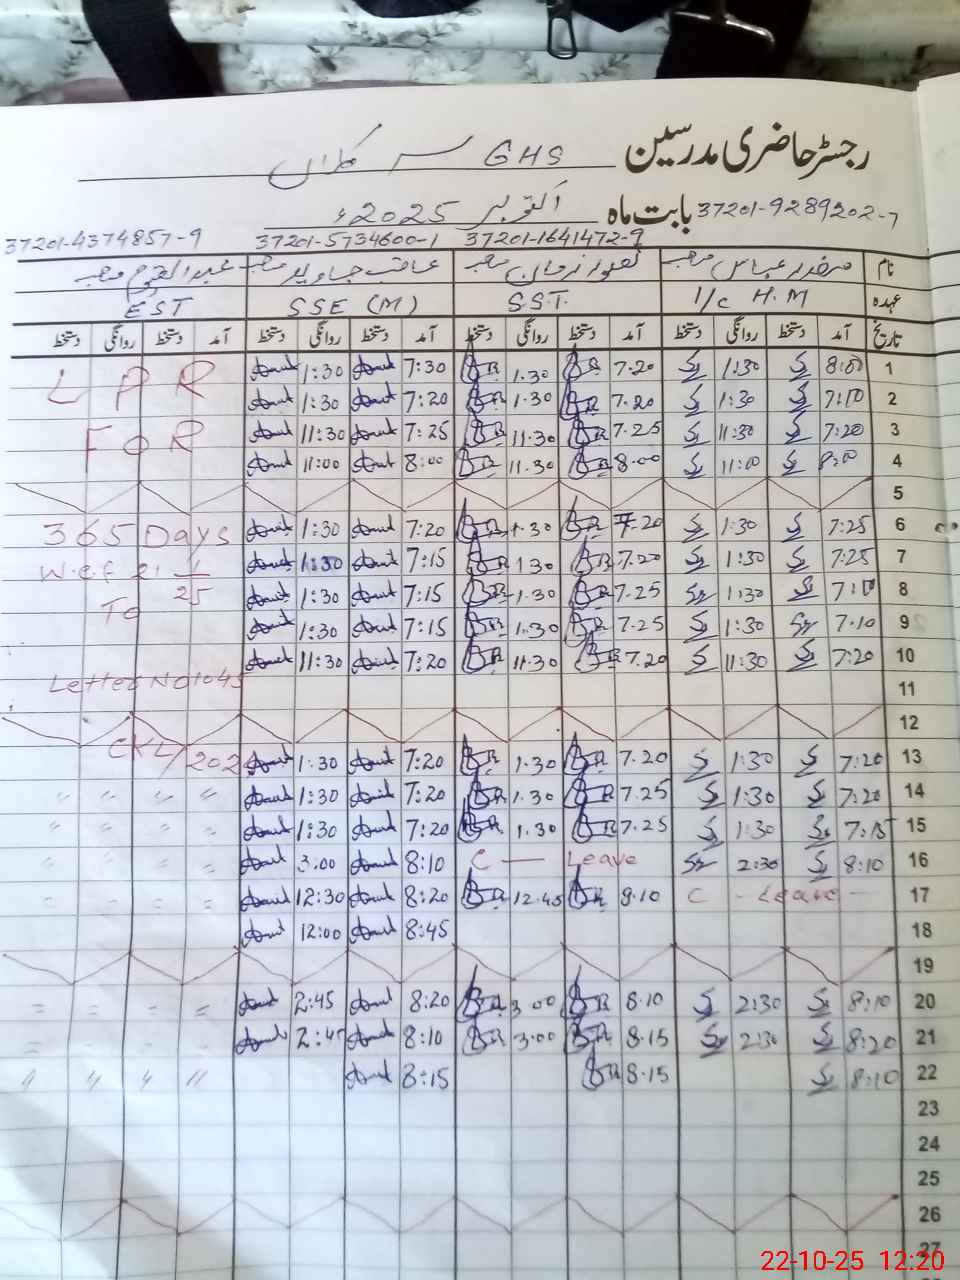 رجسٹر حاضری مدرسین GHS سر کلاں
بابت ماہ اکتوبر 2025ء
37201-9289202-7
37201-1641472-9
37201-5734600-1
37201-4374857-9
نام صفدر عباس صاحب عاقب جاوید صاحب عبدالقیوم صاحب
عہدہ I/c H.M S.S.T. SSE (M) EST
تاریخ آمد دستخط روانگی دستخط آمد دستخط روانگی دستخط آمد دستخط روانگی دستخط آمد دستخط روانگی دستخط
1 8:00 1:30 7.20 1.30 7:30 1:30 L P R
2 7:10 1:30 7.20 1.30 7:20 1:30
3 7:20 11:30 7.25 11.30 7:25 11:30 F O R
4 8:00 11:00 8.00 11.30 8:00 11:00
5
6 7:25 1:30 7.20 1.30 7:20 1:30 365 Days
7 7:25 1:30 7.20 1.30 7:15 1:30 W.e.f
8 7:10 1:30 7.25 1.30 7:15 1:30 25
9 7.10 1:30 7.25 1.30 7:15 1:30 To
10 7:20 11:30 7.20 11.30 7:20 11:30
11 Letter No 1045
12
13 7:20 1:30 7.20 1.30 7:20 1:30 CKL/202
14 7:20 1:30 7.25 1.30 7:20 1:30 " " " "
15 7:15 1:30 7.25 1.30 7:20 1:30 " " " "
16 8:10 2:30 C — Leave 8:10 3:00 " " " "
17 C - Leave - 8.10 12.45 8:20 12:30 " " " "
18 8:45 12:00
19
20 8:10 2:30 8.10 3.00 8:20 2:45 " " " "
21 8:20 2:30 8.15 3.00 8:10 2:45 " " " "
22 8:10 8.15 8:15 " " " "
23
24
25
26
27
22-10-25 12:20